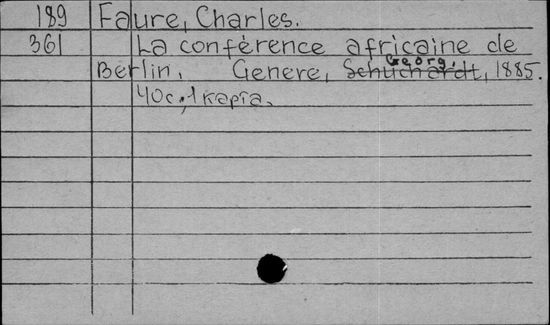 189 Faure, Charles.
361 La conférence africaine de
Georg,
Berlin. Genere, Schuchardt, 1885.
40 c., 1 карта.